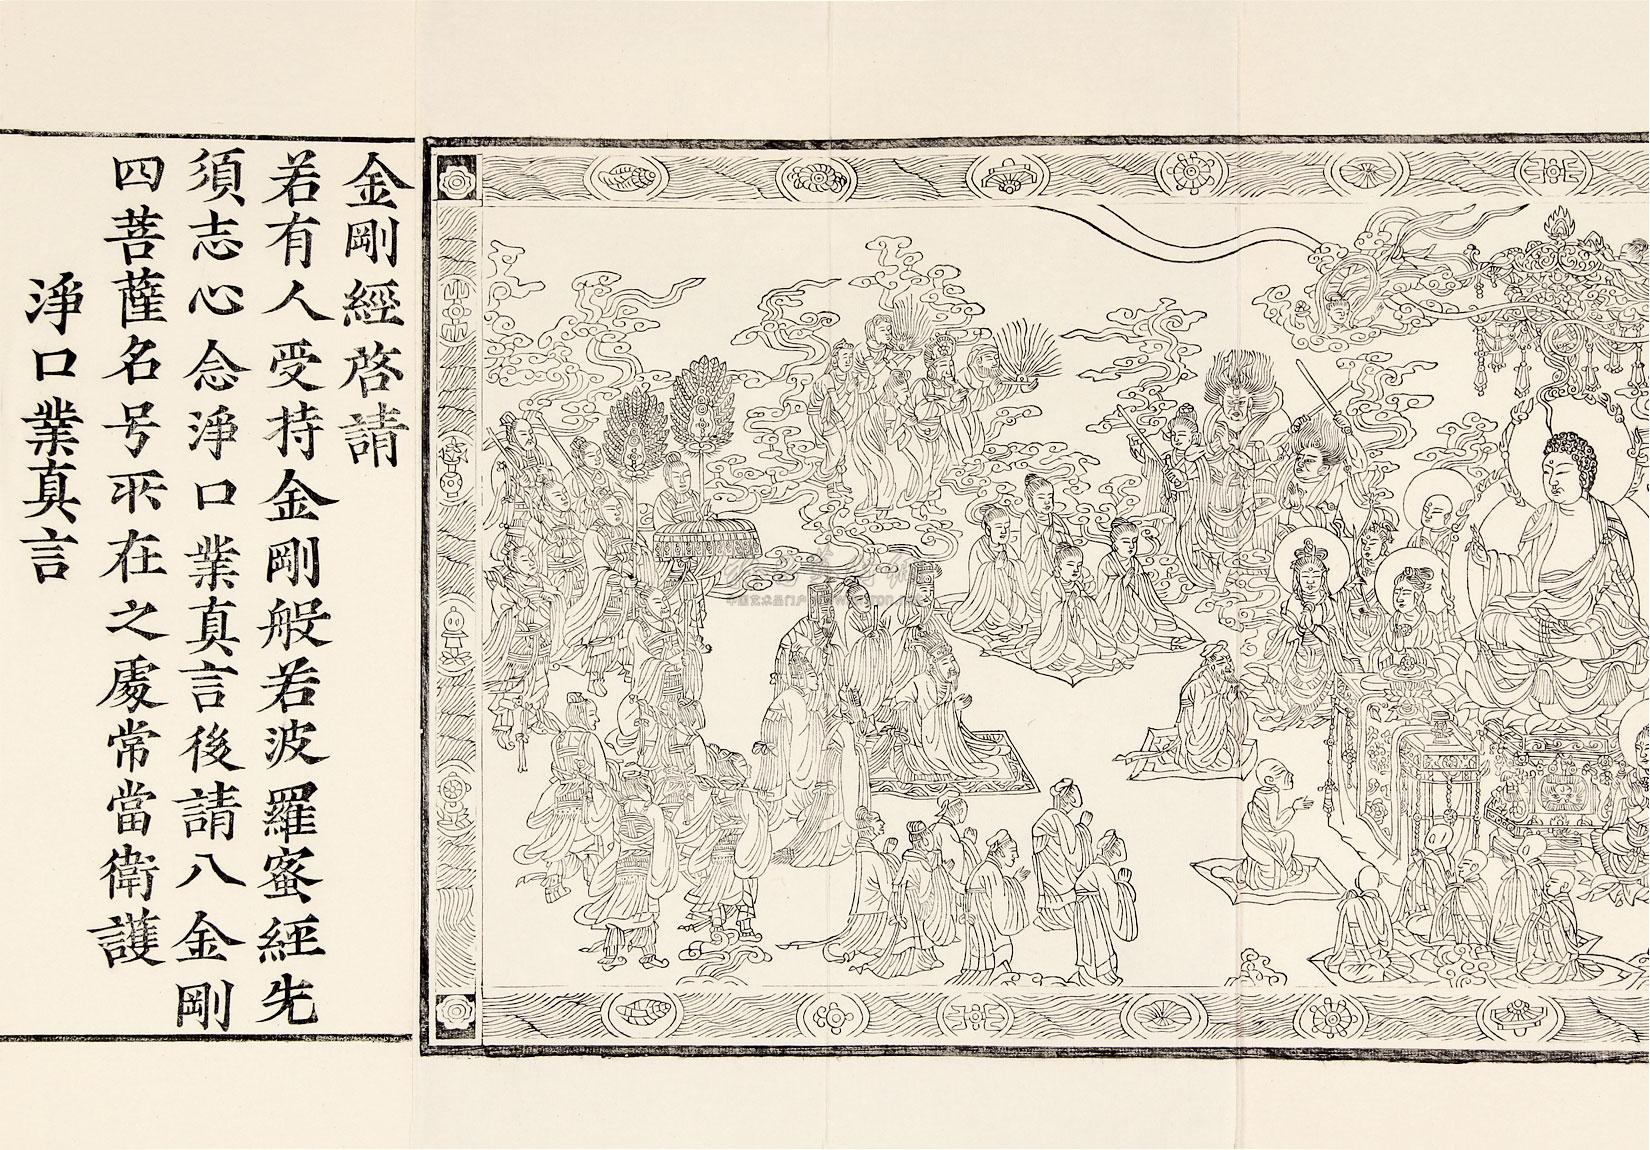 金剛經啓請
若有人受持金剛般若波羅蜜經先
須志心念淨口業真言後請八金剛
四菩薩名号所在之處常當衛護
淨口業真言